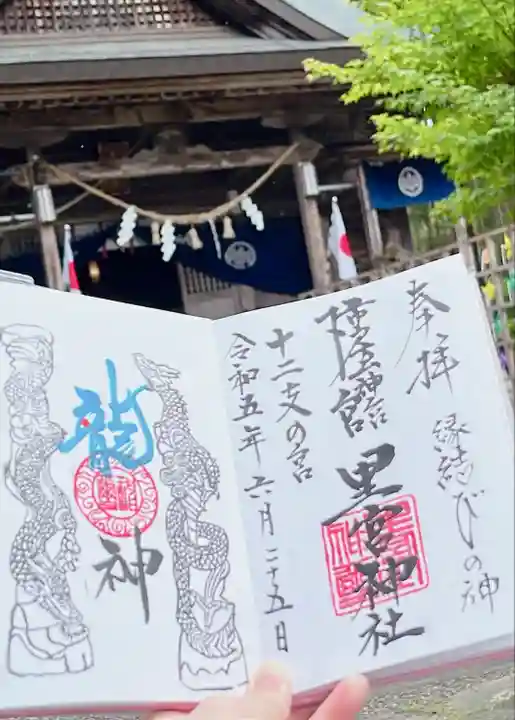 奉拝
縁結びの神
里宮神社
十二支の宮
令和五年六月二十五日
龍
神